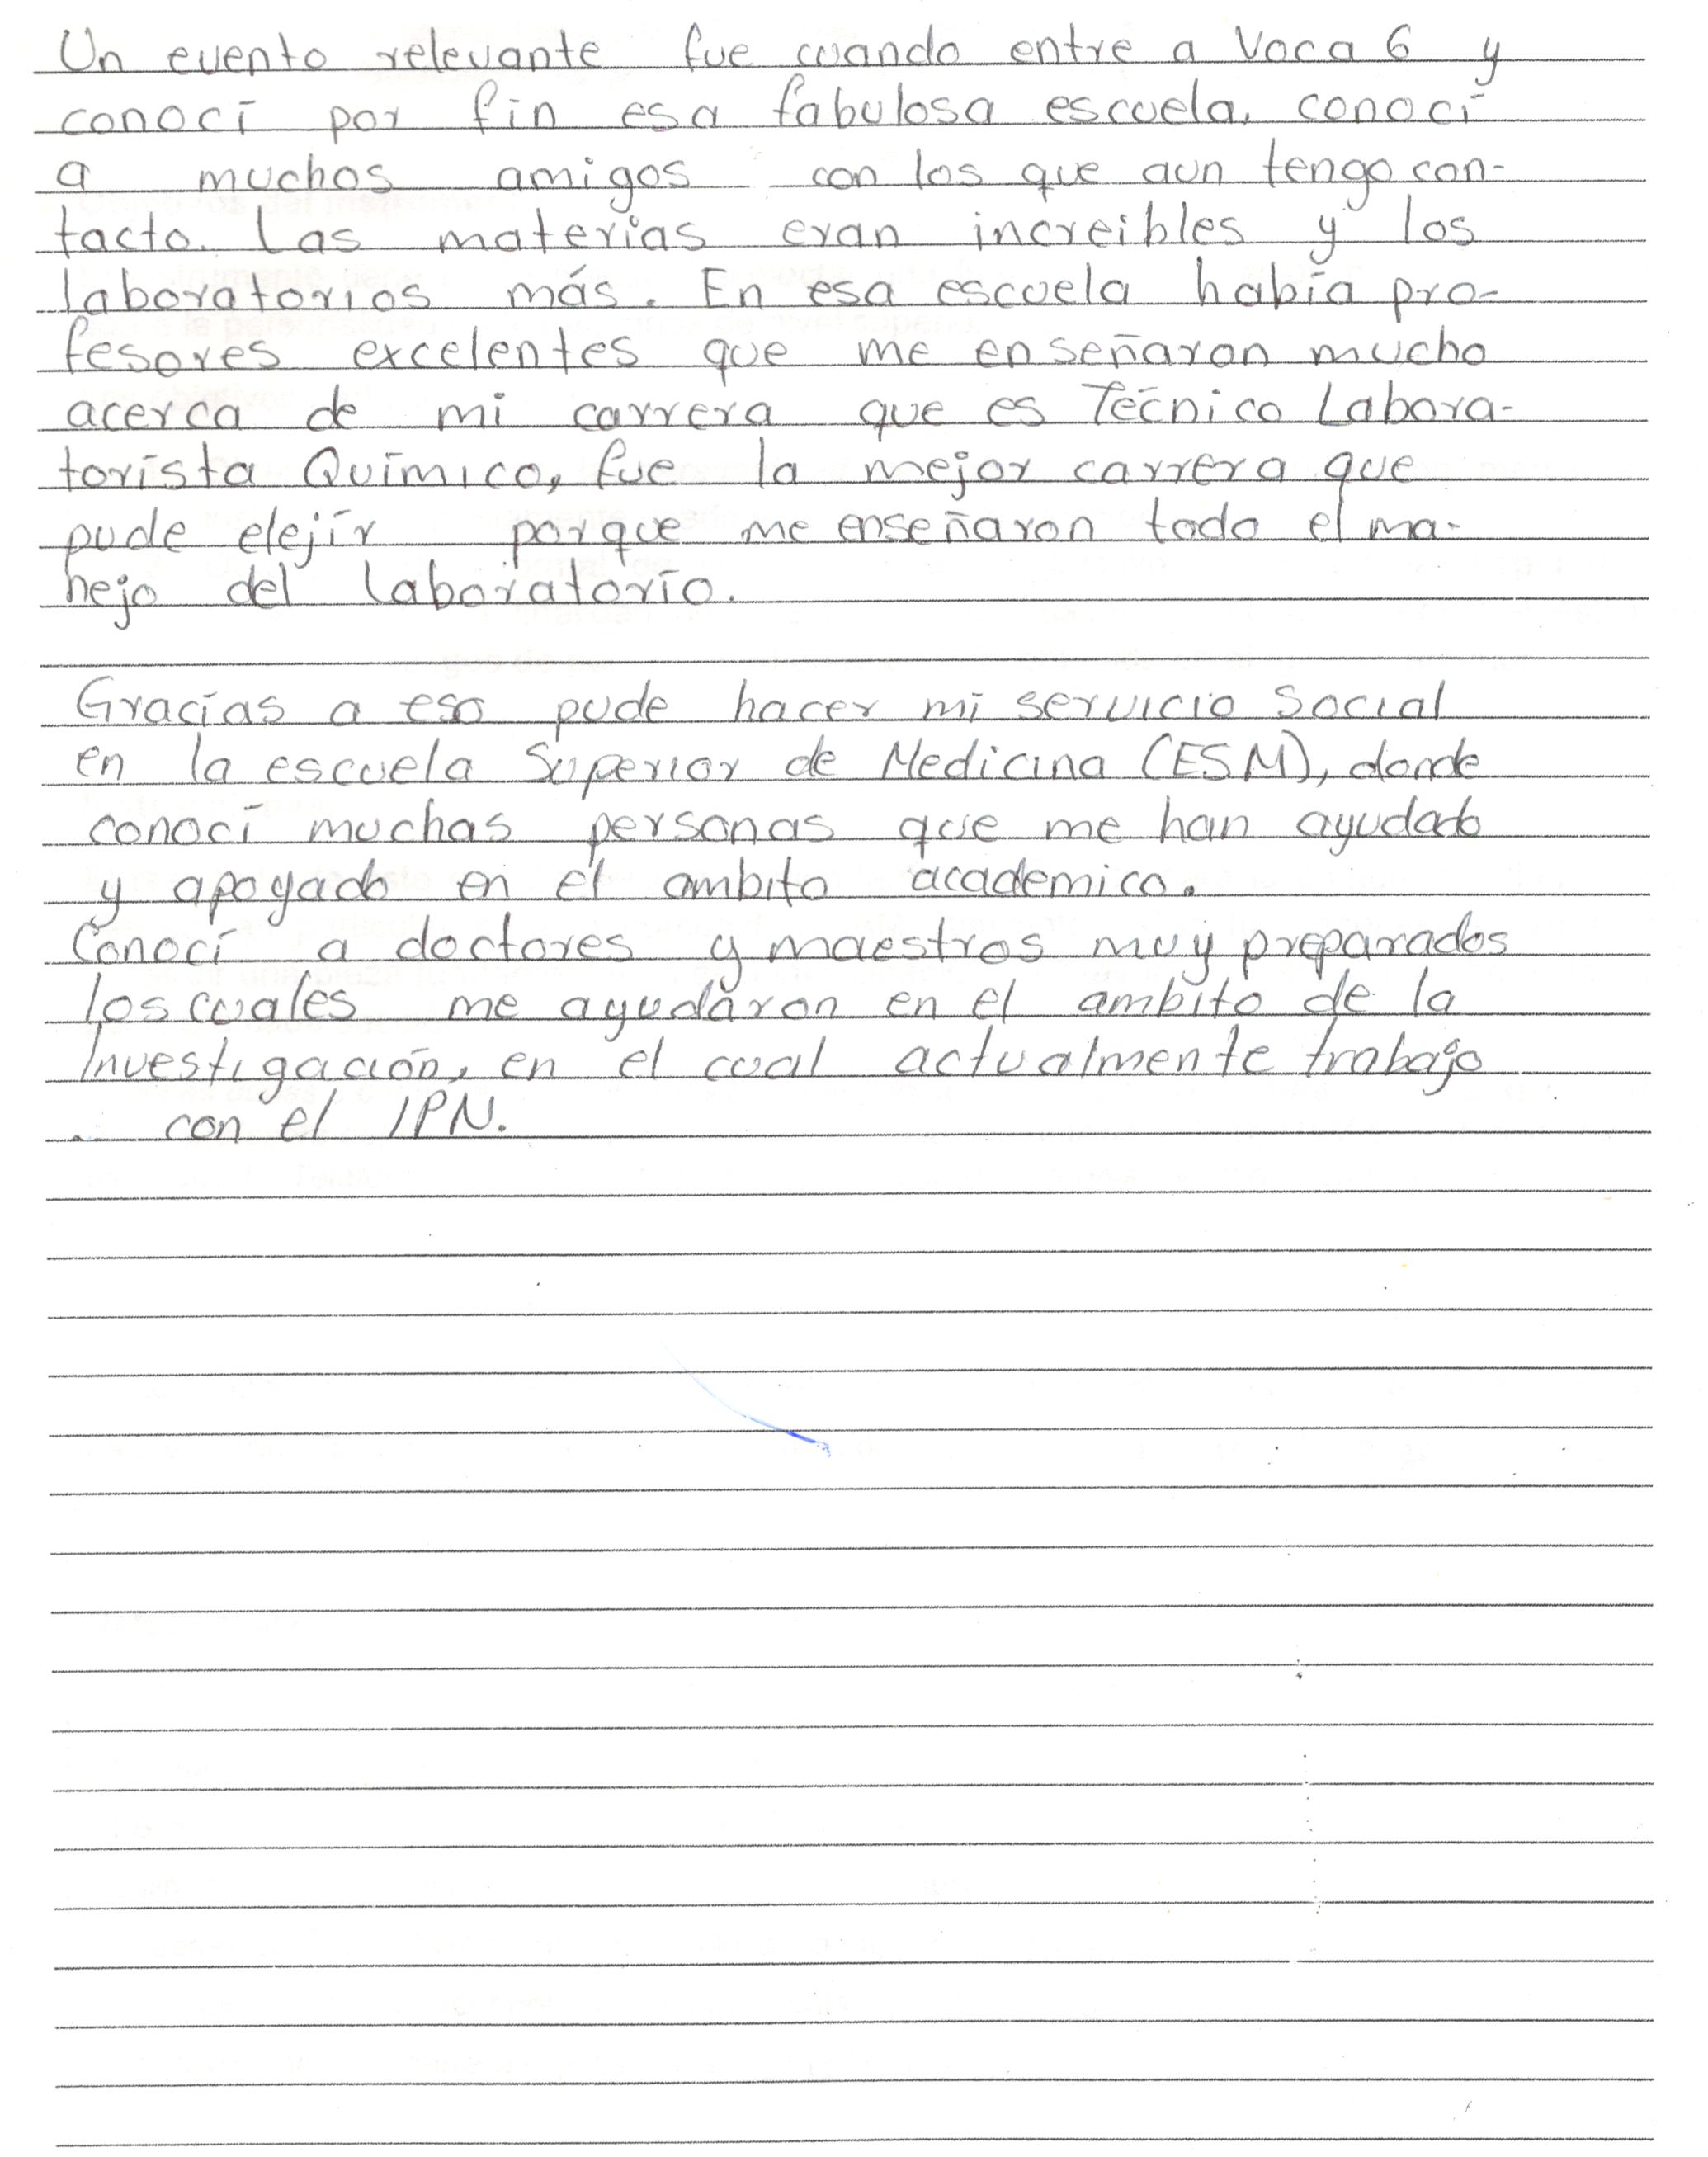 Un evento relevante fue cuando entre a Voca 6 y
conocí por fin esa fabulosa escuela, conocí
a muchos amigos con los que aun tengo con-
tacto. Las materias eran increibles y los
laboratorios más. En esa escuela había pro-
fesores excelentes que me enseñaron mucho
acerca de mi carrera que es Técnico Labora-
torista Químico, fue la mejor carrera que
pude elejir porque me enseñaron todo el ma-
nejo del laboratorio.
Gracias a eso pude hacer mi servicio Social
en la escuela Superior de Medicina (ESM), donde
conocí muchas personas que me han ayudado
y apoyado en el ambito academico.
Conocí a doctores y maestros muy preparados
los cuales me ayudaron en el ambito de la
Investigación, en el cual actualmente trabajo
con el IPN.